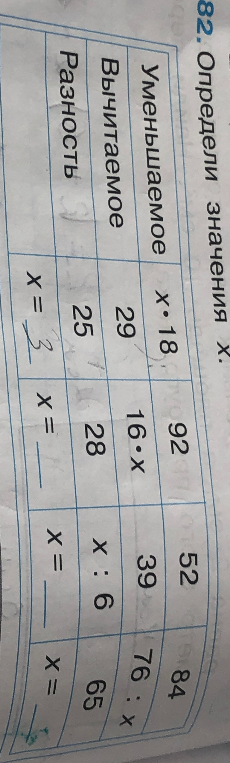 82. Определи значения х.
Уменьшаемое х•18 92 52 84
Вычитаемое 29 16•х 39 76 : х
Разность 25 28 х : 6 65
х = 3 х = __ х = __ х = __